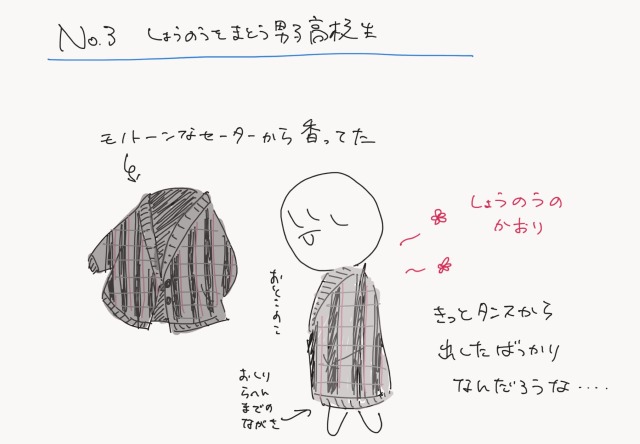 No.3 しょうのうをまとう男子高校生
モノトーンなセーターから香ってた
しょうのうの
かおり
おとこのこ
きっとタンスから
出したばっかり
なんだろうな・・・・
おしり
らへん
までの
ながさ